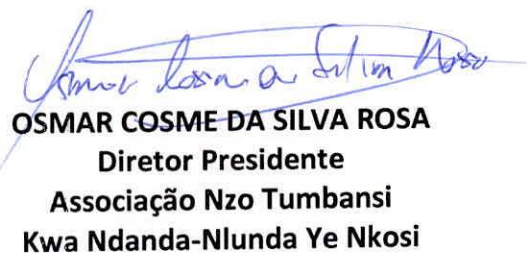 Osmar Cosme da Silva Rosa
OSMAR COSME DA SILVA ROSA
Diretor Presidente
Associação Nzo Tumbansi
Kwa Ndanda-Nlunda Ye Nkosi